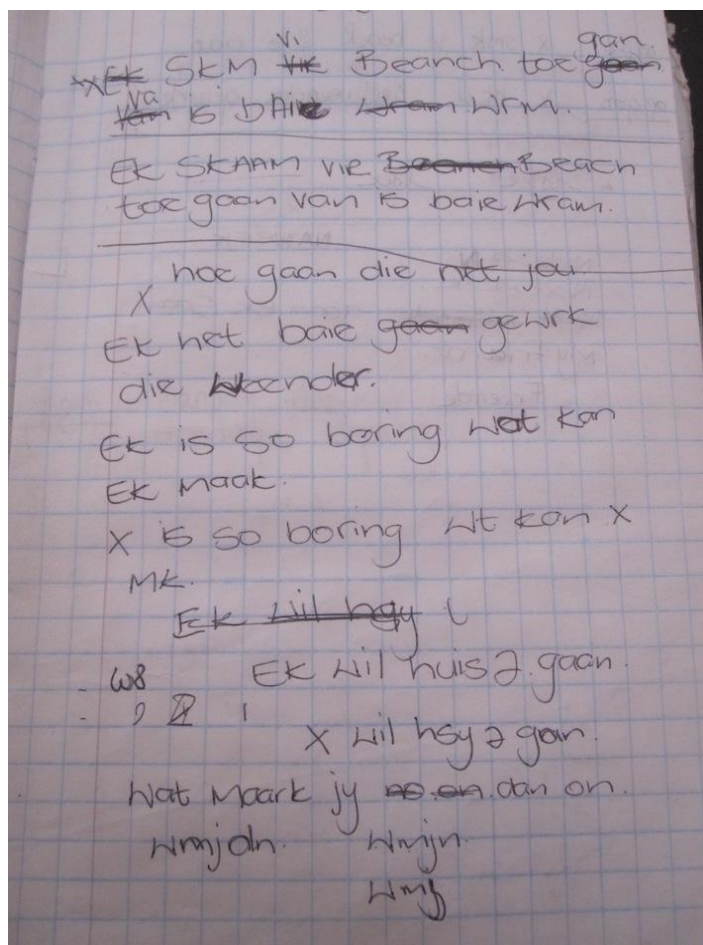 vi gan
xEk SKM vik Beanch toe gaan
va
van is bAie wram wrm.
EK SKAAM vie Beanch Beach
toe gaan van is baie wram.
hoe gaan die net jou
X
EK het baie gaan gewrk
die weender.
EK is so boring wat kan
EK maak.
X is so boring wt kan X
MK.
Ek wil hay
EK wil huis 2 gaan.
w8
X wil hsy 2 gan.
Wat maark jy no on dan on.
wmjdn. wmjn.
wmj